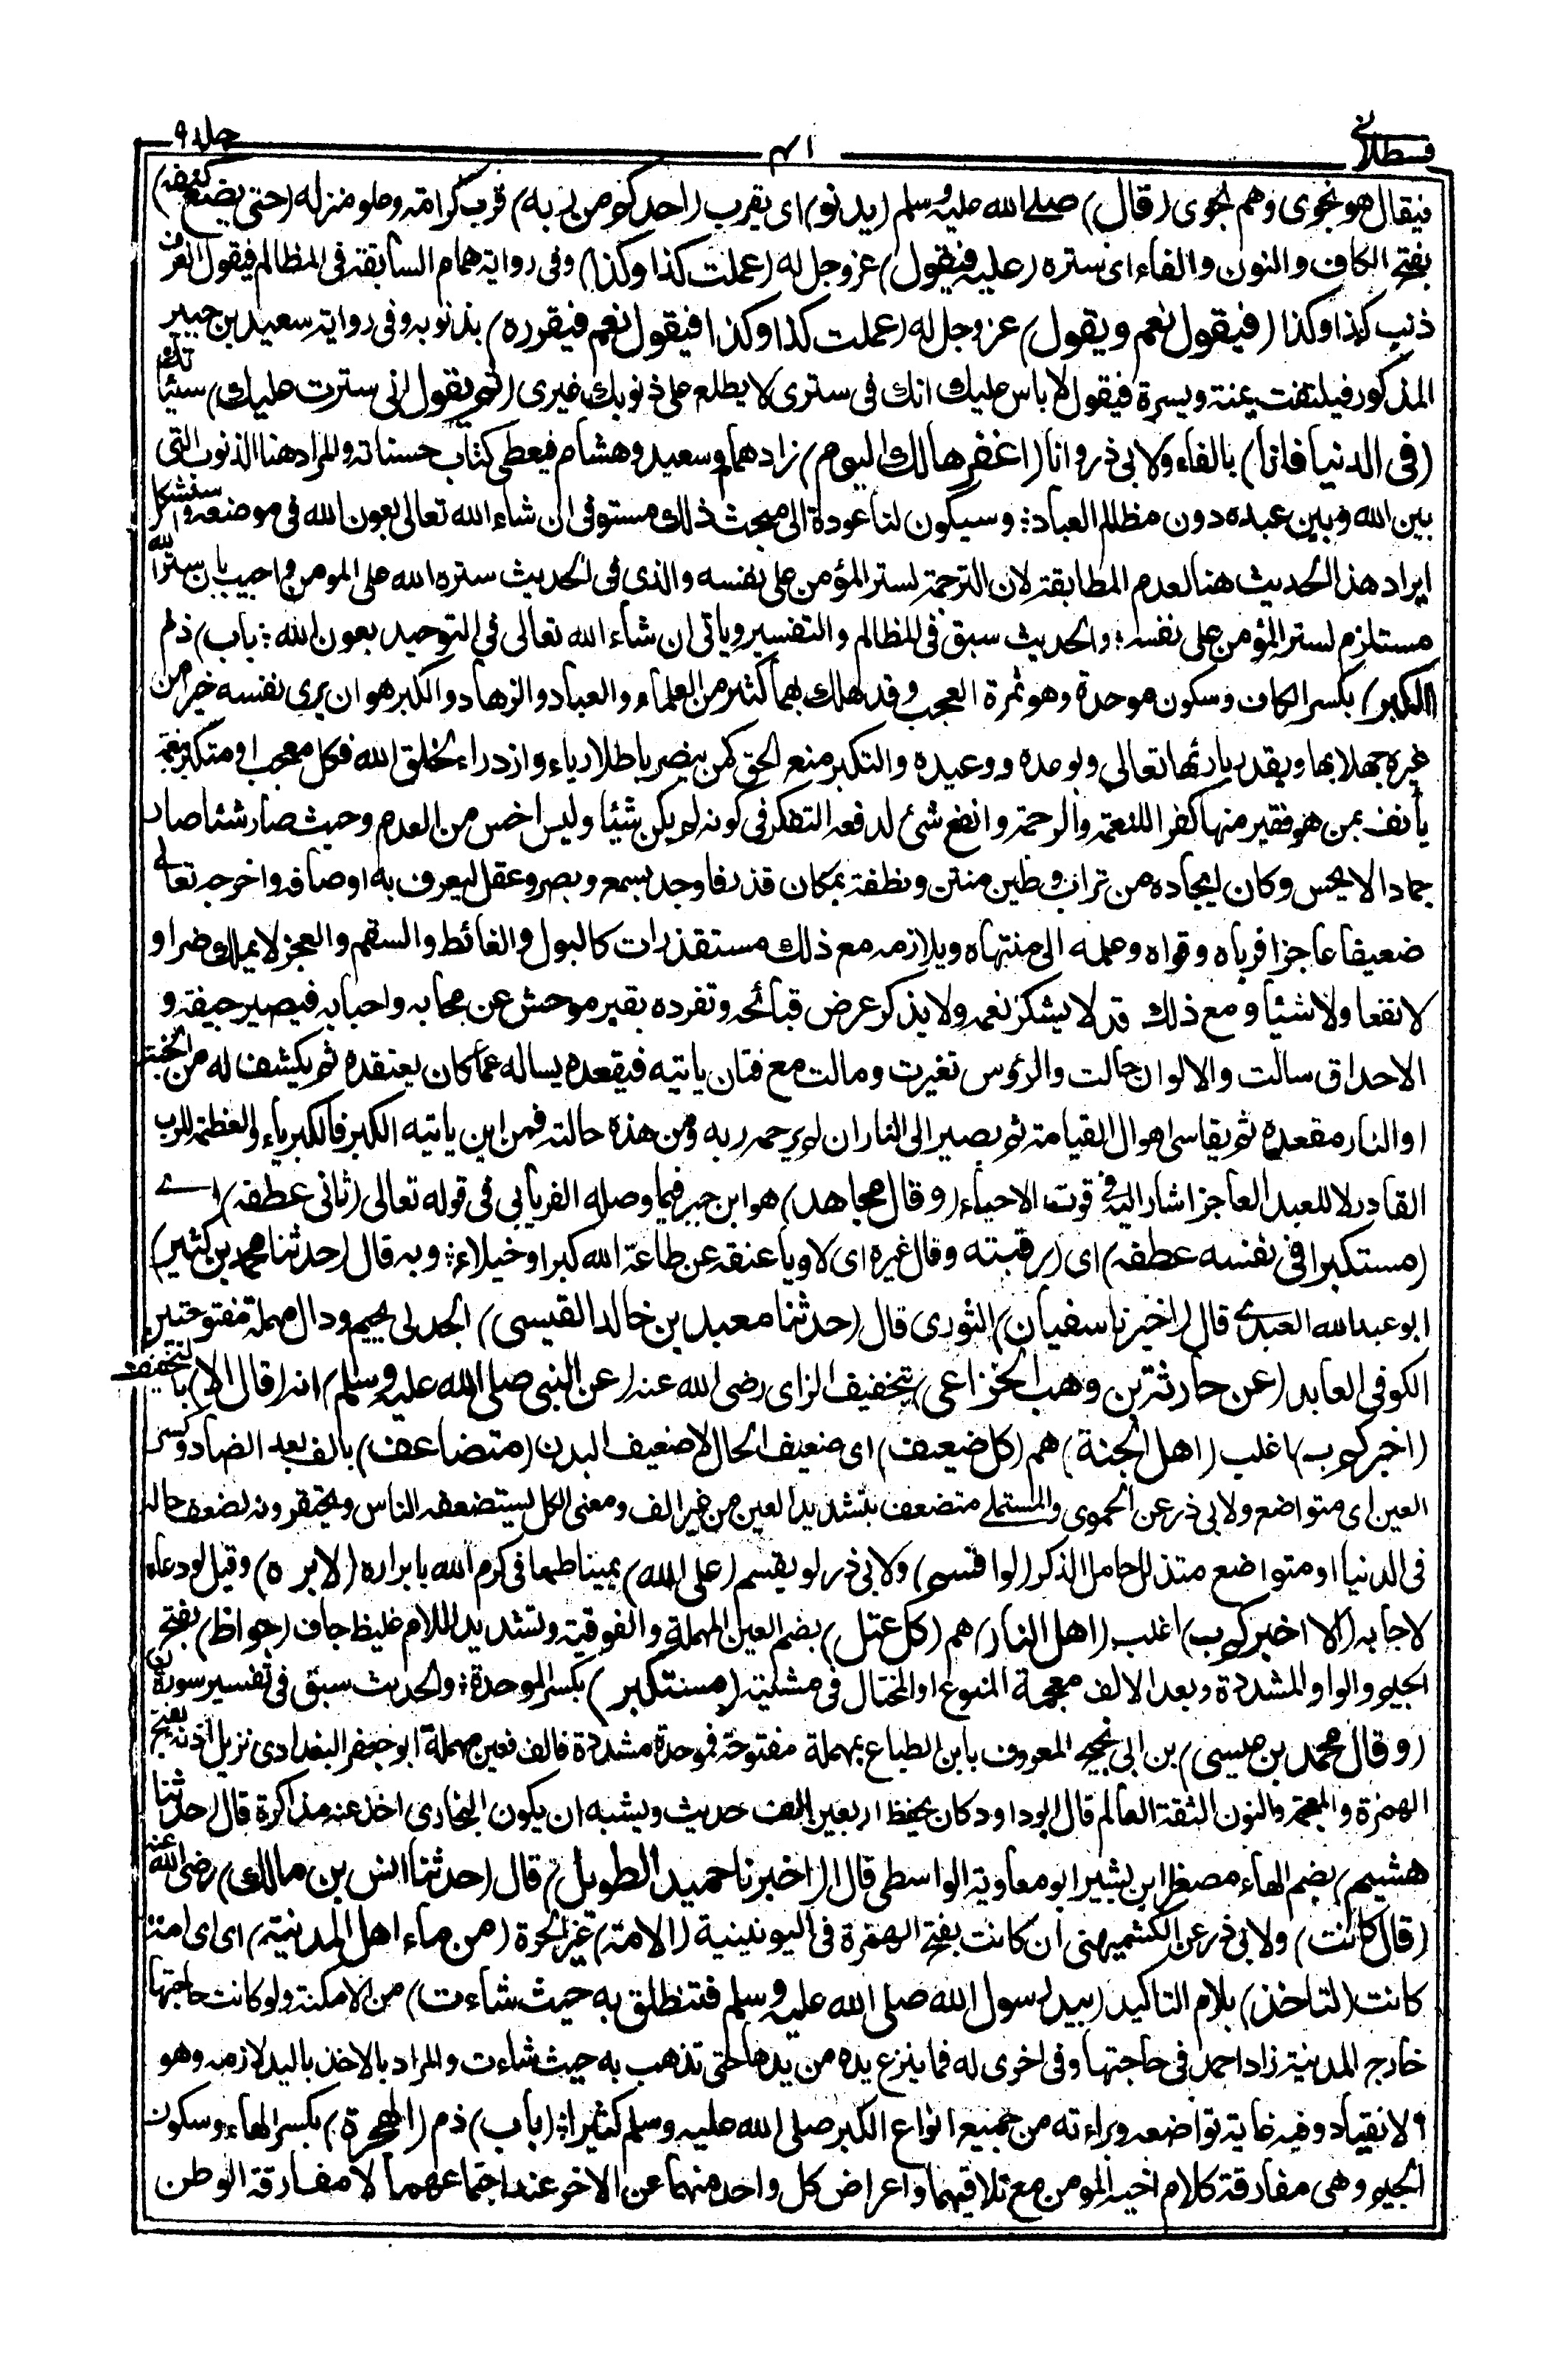 قسطلانی ٤١ جلد ٩
فيقال هو نجوى وهم نجوى (قال) صلى الله عليه وسلم (يدنو) اى يقرب (احدكم من ربه) قرب كرامة وعلو منزلة (حتى يضع كنفه)
بفتح الكاف والنون والفاء اى ستره (عليه فيقول) عز وجل له (عملت كذا وكذا) وفى رواية همام السابقة فى المظالم فيقول اتعرف
ذنب كذا وكذا (فيقول نعم ويقول) عز وجل له (عملت كذا وكذا فيقول نعم فيقرره) بذنوبه وفى رواية سعيد بن جبير
المذكور فيلتفت يمنة ويسرة فيقول لا باس عليك انك فى سترى لا يطلع على ذنوبك غيرى (ثم يقول انى سترت عليك) سيئاتك
(فى الدنيا فانا) بالفاء ولابى ذر وانا (اغفرها لك اليوم) زاد همام وسعيد وهشام فيعطى كتاب حسناته والمراد هنا الذنوب التى
بين الله وبين عبده دون مظالم العباد؛ وسيكون لنا عودة الى مبحث ذلك مستوفى ان شاء الله تعالى بعون الله فى موضعه واستشكل
ايراد هذا الحديث هنا لعدم المطابقة لان الترجمة لستر المؤمن على نفسه والذى فى الحديث ستره الله على المومن واجيب بان ستر الله
مستلزم لستر المؤمن على نفسه؛ والحديث سبق فى المظالم والتفسير وياتى ان شاء الله تعالى فى التوحيد بعون الله؛ باب) ذم
(الكبر) بكسر الكاف وسكون موحدة وهو ثمرة العجب وقد هلك بهما كثير من العلماء والعباد والزهاد والكبر هو ان يرى نفسه خيرا من
غيره جهلا بها وبقدر بارئها تعالى وبوعده ووعيده والتكبر منع الحق كمن ينصر باطلا رياء وازدراء لخلق الله فكل معجب او متكبر بنعمة
يأنف بمن هو فقير منها كفر اللنعمة والرحمة وانفع شئ لدفعه التفكر فى كونه لم يكن شيئا وليس اخس من العدم وحيث صار شئا صار
جمادا لا يحس وكان ايجاده من تراب وطين منتن ونطفة بمكان قذر فاوجد بسمع وبصر وعقل ليعرف به اوصافه واخرجه تعالى
ضعيفا عاجزا فرباه وقواه وعمله الى منتهاه ويلازمه مع ذلك مستقذرات كالبول والغائط والسقم والعجز لا يملك ضرا و
لا نفعا ولا شئيا ومع ذلك قد لا يشكر نعمه ولا يذكر عرض قبائحه وتفرده بقبر موحش عن محابه واحبابه فيصير جيفة و
الاحداق سالت والالوان حالت والرؤس تغيرت ومالت مع فتان ياتيه فيقعده يساله عما كان يعتقده ثم يكشف له من الجنة
او النار مقعده ثم يقاسى اهوال القيامة ثم يصير الى النار ان لم يرحمه ربه ومن هذه حالته فمن اين ياتيه الكبر فالكبرياء والعظمة للرب
القادر لا للعبد العاجز اشار اليه فى قوت الاحياء (وقال مجاهد) هو ابن جبر فيما وصله الفريابى فى قوله تعالى (ثانى عطفه) اے
(مستكبرا فى نفسه عطفه) اى (رقبته وقال غيره اى لاويا عنقه عن طاعة الله كبرا وخيلاء؛ وبه قال (حدثنا محمد بن كثير)
ابو عبد الله العبدى قال (اخبرنا سفيان) الثورى قال (حدثنا معبد بن خالد القيسى) الجدلى بجيم ودال مهملة مفتوحتين
الكوفى العابد (عن حارثة بن وهب الخزاعى) بتخفيف الزاى رضى الله عنه (عن النبى صلى الله عليه وسلم) انه (قال الا) بالتخفيف
(اخبركم ب) اغلب (اهل الجنة) هم (كل ضعيف) اى ضعيف الحال لا ضعيف البدن (متضاعف) بالف بعد الضاد وكسر
العين اى متواضع ولابى ذر عن الحموى والمستملى متضعف بتشديد العين من غير الف ومعنى الكل يستضعفه الناس ويحتقرونه لضعف حاله
فى الدنيا او متواضع متذلل خامل الذكر (لو اقسم) ولابى ذر لو يقسم (على الله) يمينا طمعا فى كرم الله بابراره (لابره) وقيل لو دعاه
لاجابه (الا اخبركم ب) اغلب (اهل النار) هم (كل عتل) بضم العين المهملة والفوقية وتشديد اللام غليظ جاف (جواظ) بفتح
الجيم والواو المشددة وبعد الالف معجمة المنوع او المختال فى مشيته (مستكبر) بكسر الموحدة؛ والحديث سبق فى تفسير سورة ن
(وقال محمد بن عيسى) بن ابى نجيح المعروف بابن الطباع بمهملة مفتوحة فموحدة مشددة فالف فعين مهملة ابو جعفر البغدادى نزيل اذنة بفتح
الهمزة والمعجمة والنون الثقة العالم قال ابو داود كان يحفظ اربعين الف حديث ويشبه ان يكون البخارى اخذ عنه مذاكرة قال (حدثنا
هشيم) بضم الهاء مصغرا ابن بشير ابو معاوية الواسطى قال (اخبرنا حميد الطويل) قال (حدثنا انس بن مالك) رضى الله عنه
(قال كانت) ولابى ذر عن الكشميهنى ان كانت بفتح الهمزة فى اليونينية (الامة) غير الحرة (من ماء اهل المدينة) اى اى امة
كانت (لتاخذ) بلام التاكيد (بيد رسول الله صلى الله عليه وسلم فتنطلق به حيث شاءت) من الامكنة ولو كانت حاجتها
خارج المدينة زاد احمد فى حاجتها وفى اخرى له فما ينزع يده من يدها حتى تذهب به حيث شاءت والمراد بالاخذ باليد لازمه وهو
الانقياد وفيه غاية تواضعه وبراءته من جميع انواع الكبر صلى الله عليه وسلم كثيرا؛ (باب) ذم (الهجرة) بكسر الهاء وسكون
الجيم وهى مفارقة كلام اخيه المومن مع تلاقيهما واعراض كل واحد منهما عن الاخر عند اجتماعهما لا مفارقة الوطن